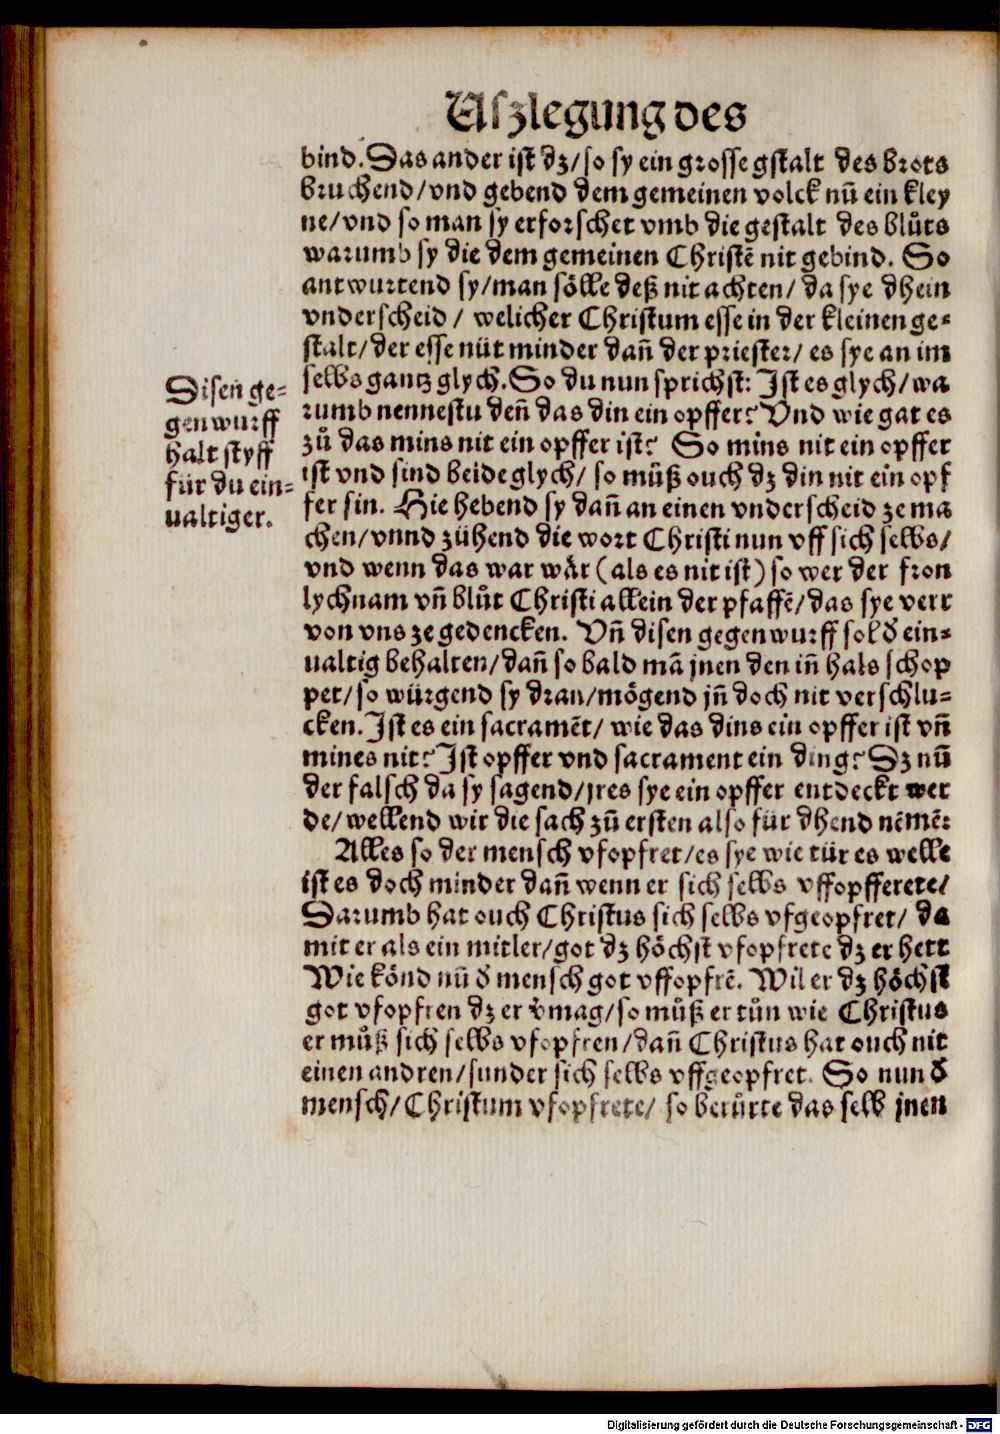 Uſzlegung des
bind. Das ander iſt dz/ ſo ſy ein groſſe gſtalt des brots
bruchend/ vnd gebend dem gemeinen volck nū ein kley
ne/ vnd ſo man ſy erforſchet vmb die geſtalt des blůts
warumb ſy die dem gemeinen Chriſtē nit gebind. So
antwurtend ſy/ man ſölle deß nit achten/ da ſye dhein
vnderſcheid / welicher Chriſtum eſſe in der kleinen ge⸗
ſtalt/ der eſſe nüt minder dañ der prieſter/ es ſye an im
ſelbs gantz glych. So du nun ſprichſt: Iſt es glych/ wa
rumb nenneſtu deñ das din ein opffer? Vnd wie gat es
zů das mins nit ein opffer iſt? So mins nit ein opffer
iſt vnd ſind beide glych/ ſo můß ouch dz din nit ein opf
fer ſin. Hie hebend ſy dañ an einen vnderſcheid ze ma
chen/ vnnd zühend die wort Chriſti nun vff ſich ſelbs/
vnd wenn das war wår (als es nit iſt) ſo wer der fron
lychnam vñ blůt Chriſti allein der pfaffē/ das ſye verr
von vns ze gedencken. Vñ diſen gegenwurff ſol d̕ ein⸗
ualtig behalten/ dañ ſo bald mā jnen den iñ hals ſchop
pet/ ſo würgend ſy dran/ mögend jñ doch nit verſchlu⸗
cken. Iſt es ein ſacramēt/ wie das dins ein opffer iſt vñ
mines nit? Iſt opffer vnd ſacrament ein ding? Dz nū
der falſch da ſy ſagend/ jres ſye ein opffer entdeckt wer
de/ wellend wir die ſach zū erſten alſo für dhend nēmē:
Alles ſo der menſch vfopfret/ es ſye wie tür es welle
iſt es doch minder dañ wenn er ſich ſelbs vffopfferete/
Darumb hat ouch Chriſtus ſich ſelbs vfgeopfret/ da
mit er als ein mitler/ got dz höchſt vfopfrete dz er hett
Wie könd nū d̕ menſch got vffopfrē. Wil er dz höchſt
got vfopfren dz er v̕mag/ ſo můß er tůn wie Chriſtus
er můß ſich ſelbs vfopfren/ dañ Chriſtus hat ouch nit
einen andren/ ſunder ſich ſelbs vffgeopfret. So nun d̕
menſch/ Chriſtum vfopfrete/ ſo berůrte das ſelb jnen
Diſen ge⸗
genwurff
halt ſtyff
für du ein⸗
ualtiger.
Digitalisierung gefördert durch die Deutsche Forschungsgemeinschaft - DFG